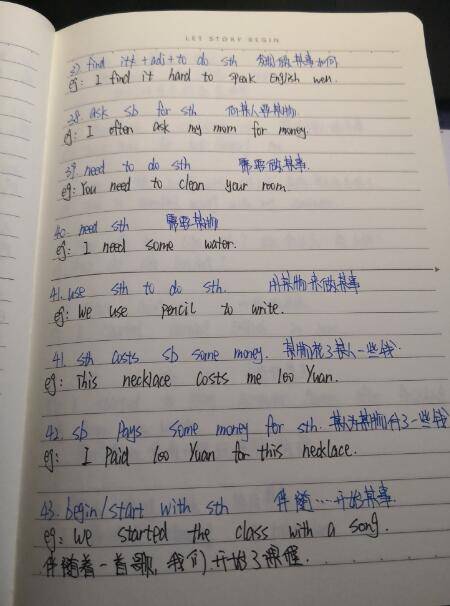 LET STORY BEGIN
37 find it + adj + to do sth 发现做某事如何
eg: I find it hard to speak English well.
38 ask sb for sth 向某人要某物
eg: I often ask my mom for money.
39. need to do sth 需要做某事.
eg: You need to clean your room.
40. need sth 需要某物
eg: I need some water.
41. use sth to do sth. 用某物来做某事
eg: We use pencil to write.
41. sth costs sb some money. 某物花了某人一些钱.
eg: This necklace costs me 100 Yuan.
42. sb pays some money for sth. 某人为某物付了一些钱
eg: I paid 100 Yuan for this necklace.
43. begin/start with sth 伴随…开始某事.
eg: We started the class with a song.
伴随着一首歌, 我们开始了课程.